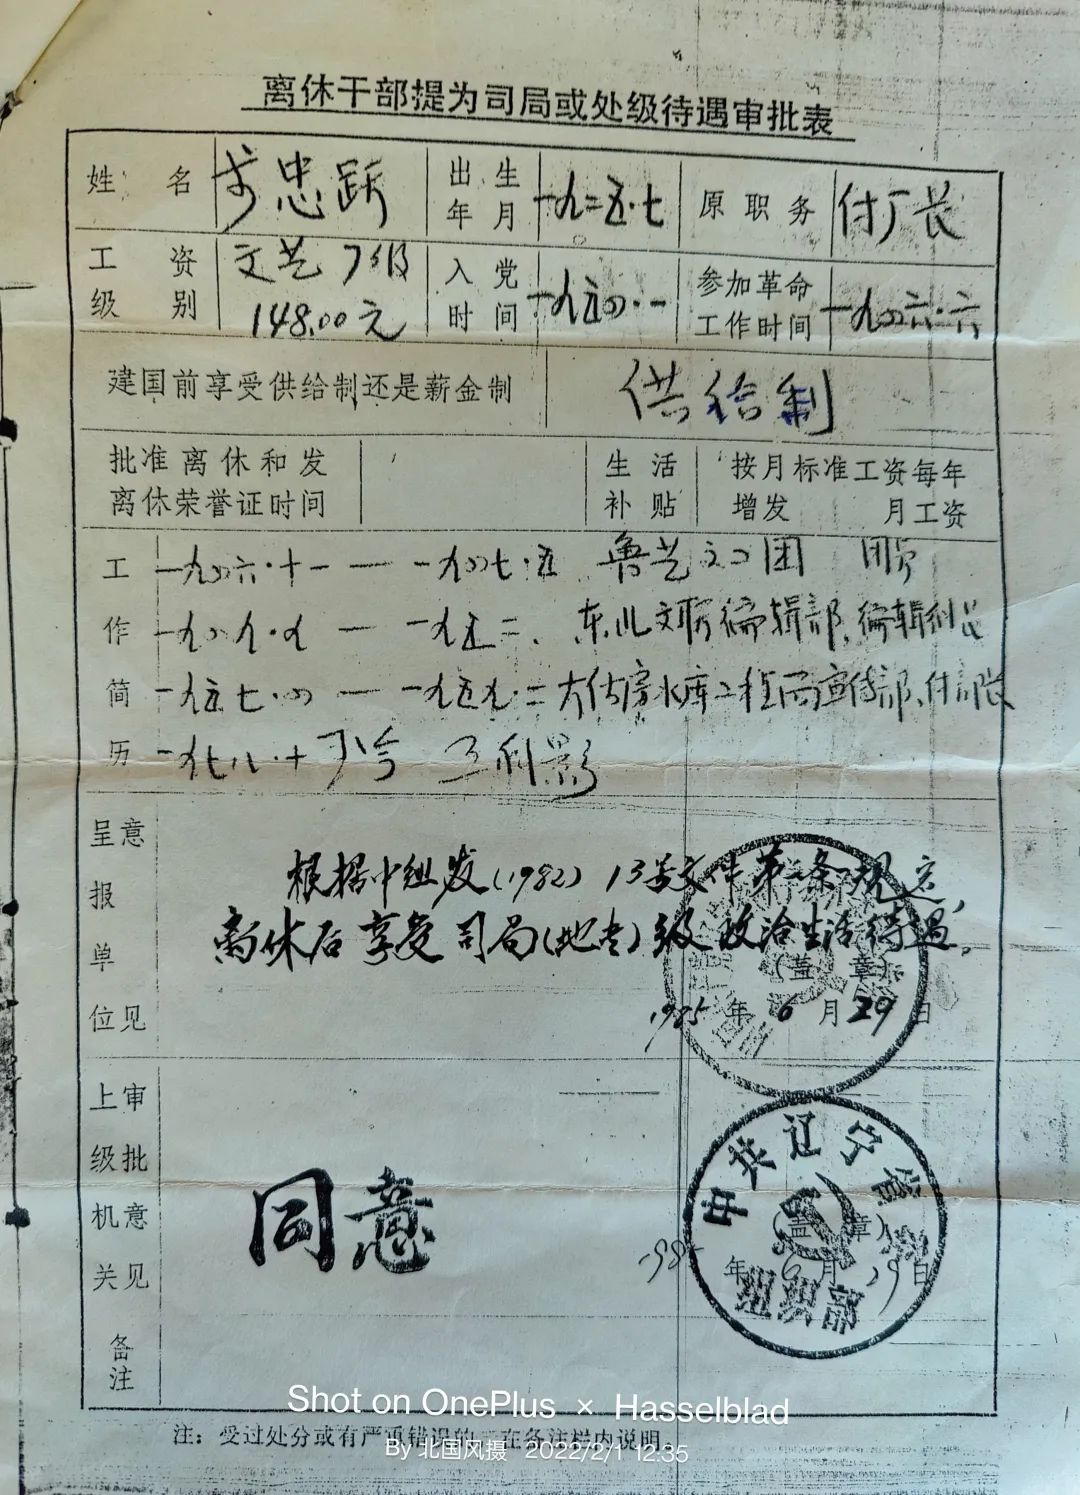 离休干部提为司局或处级待遇审批表
姓名 忠跃 出生年月 一九二五·七 原职务 付厂长
工资级别 文艺7级 148.00元 入党时间 一九五四·一 参加革命工作时间 一九四六·六
建国前享受供给制还是薪金制 供给制
批准离休和发离休荣誉证时间 生活补贴 按月标准工资每年增发 月工资
工作简历
一九四六·十一 — 一九四七·五 鲁艺文工团 团员
一九四九·九 — 一九五二· 东北文联编辑部、编辑
一九五七·四 — 一九五九·二 大伙房水库工程局宣传部、付部长
一九七八·十 于今
呈报单位意见
根据中组发(1982)13号文件第二条规定,
离休后享受司局(地专)级政治生活待遇。
(盖章)
1985年6月29日
上级机关审批意见
同意
中共辽宁省委
组织部
(盖章)
1985年6月29日
备注
注：受过处分或有严重错误的 在备注栏内说明
Shot on OnePlus × Hasselblad
By 北国风摄 2022/2/1 12:35